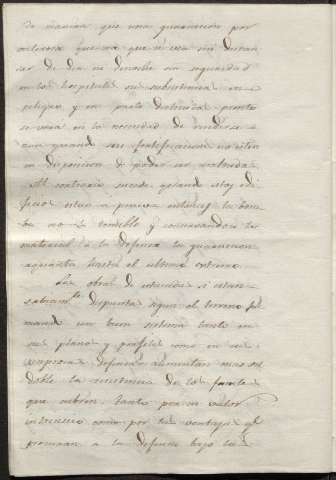 de manera que una guarnicion por
valerosa que sea que se vea sin descan
sar de dia ni de noche sin seguridad
en los hospitales sus subsistencias en
peligro y en parte destruidas pronto
se verá en la necesidad de rendirse
aun quando sus fortificaciones no esten
en disposicion de poder ser
Al contrario sucede quando estos edi
ficios estan a prueva entonces la bom
ba no es temible y conservandose los
materiales de la defensa la guarnicion
aguanta hasta el ultimo extremo.
Las obras de
dispuestas segun el terreno for
mando un buen sistema tanto en
sus planos y perfiles como en sus
defensas aumentan mas del
doble la resistencia de los frentes
que cubren, tanto por su valor
intrinseco como por las ventajas q.e
procuran a la defensa bajo la